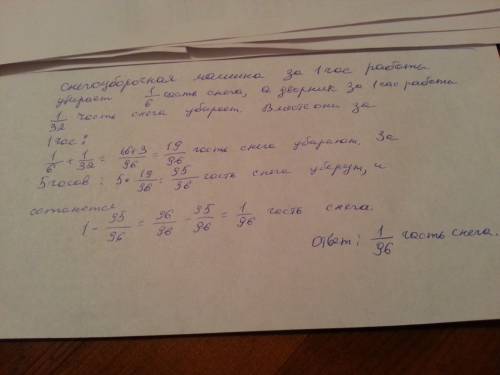 Снегоуборочная машина за 1 час работы
убирает 1/6 часть снега, а дворник за 1 час работы
1/32 часть снега убирает. Вместе они за
1 час:
1/6 + 1/32 = 16+3/96 = 19/96 часть снега убирают. За
5 часов: 5 * 19/96 = 95/96 часть снега уберут, и
останется
1 - 95/96 = 96/96 - 95/96 = 1/96 часть снега.
Ответ: 1/96 часть снега.